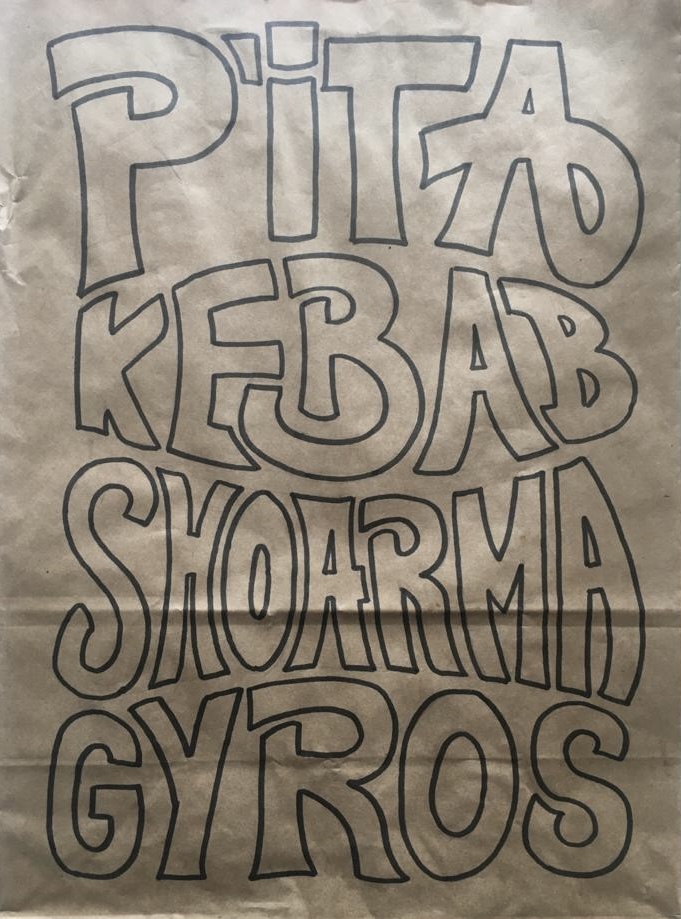 P'iTA
KEBAB
SHOARMA
GYROS